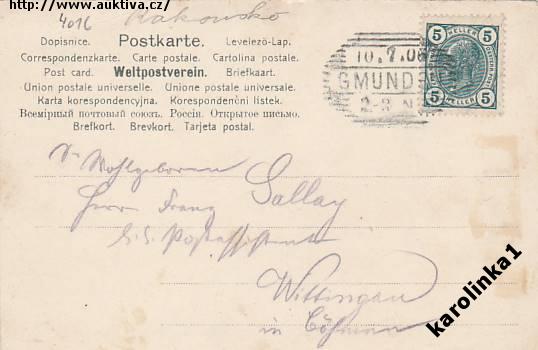 http://www.auktiva.cz/
4016 Rakousko
Dopisnice. Postkarte. Levelező-Lap.
Correspondenzkarte. Carte postale. Cartolina postale.
Post card. Weltpostverein. Briefkaart.
Union postale universelle. Unione postale universale.
Karta korespondencyjna. Korespondenčni listek.
Всемірный почтовый союзъ. Россія. Открытое письмо.
Brefkort. Brevkort. Tarjeta postal.
5 HELLER 5
5 HELLER 5
10.7.06
GMUNDEN
Wohlgeboren
Herr Franz Sallay
k.k. Postassistent
Wittingau
in Böhmen
karolinka1